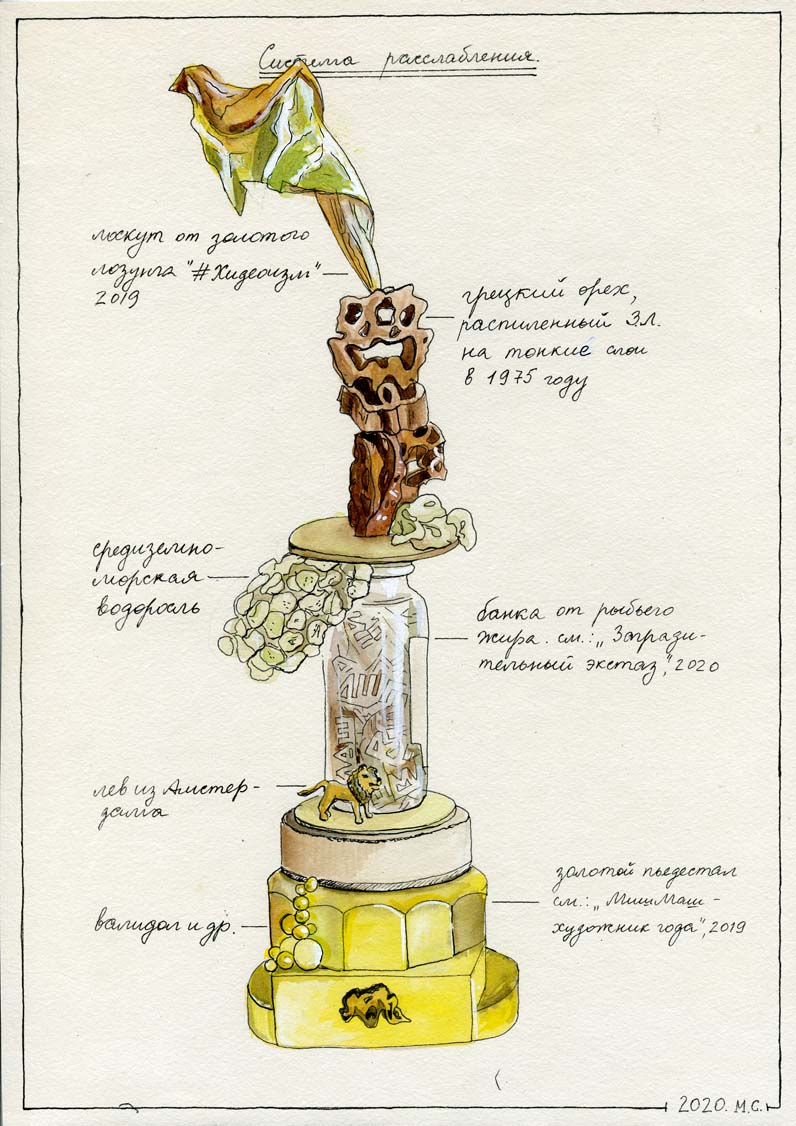 Система расслабления.
лоскут от золотого
лозунга "#Хидеоизм"
2019
грецкий орех,
распиленный З.Л.
на тонкие слои
в 1975 году
средиземно-
морская
водоросль
банка от рыбьего
жира. см.: „Загради-
тельный экстаз", 2020
лев из Амстер-
дама
золотой пьедестал
см.: „МишМаш -
художник года", 2019
валидол и др.
2020. М.С.